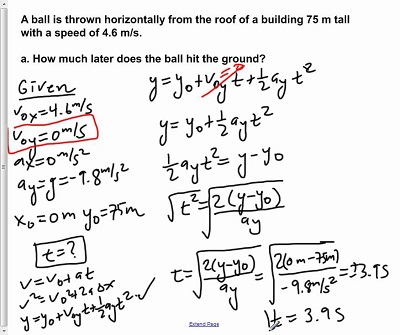 A ball is thrown horizontally from the roof of a building 75 m tall
with a speed of 4.6 m/s.
a. How much later does the ball hit the ground?
Given
v₀ₓ=4.6 m/s
v₀y=0 m/s
aₓ=0 m/s²
ay=g=-9.8 m/s²
x₀=0m y₀=75m
t=?
v=v₀+at
v²=v₀²+2aΔx
y=y₀+v₀yt+½ayt² ✓
y=y₀+v₀yt+½ayt²
y=y₀+½ayt²
½ayt²=y-y₀
√t²=√(2(y-y₀)/ay)
t=√(2(y-y₀)/ay)=√(2(0m-75m)/-9.8m/s²)=±3.9s
t=3.9s
Extend Page